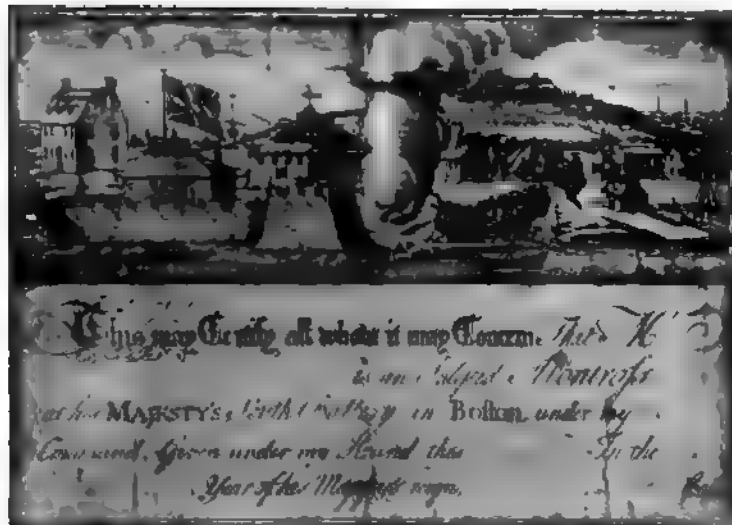 This may Certify all whom it may Concern. That
is an Matross
at his MAJESTY'S North Battery in Boston, under my
Command. Given under my Hand this In the
Year of his Majesty's reign.